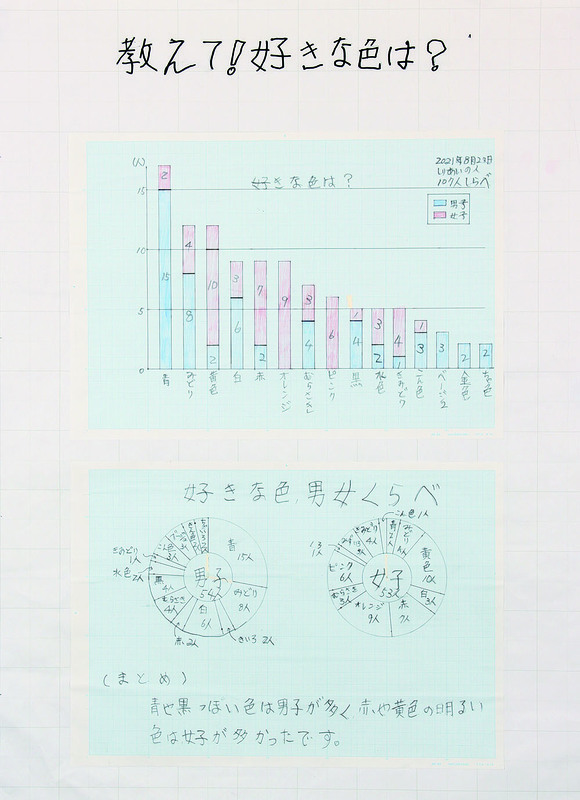 教えて!好きな色は?
2021年8月23日
しりあいの人
107人しらべ
好きな色は?
(人)
男子
女子
15
10
5
0
2
15
4
8
10
2
3
6
7
2
9
3
4
6
1
4
3
2
4
1
1
3
3
2
2
青
みどり
黄色
白
赤
オレンジ
むらさき
ピンク
黒
水色
きみどり
こん色
ベージュ
金色
好きな色,男女くらべ
男子
54人
青
15人
みどり
8人
きいろ 2人
白
6人
赤 2人
むらさき
4人
黒
4人
水色 2人
きみどり
1人
こん色
3人
女子
53人
こん色 1人
青
2人
みどり
4人
黄色
10人
白
3人
赤
7人
オレンジ
9人
むらさき
3人
ピンク
6人
1人
みず
3人
きみどり
4人
(まとめ)
青や黒っぽい色は男子が多く 赤や黄色の明るい
色は女子が多かったです。